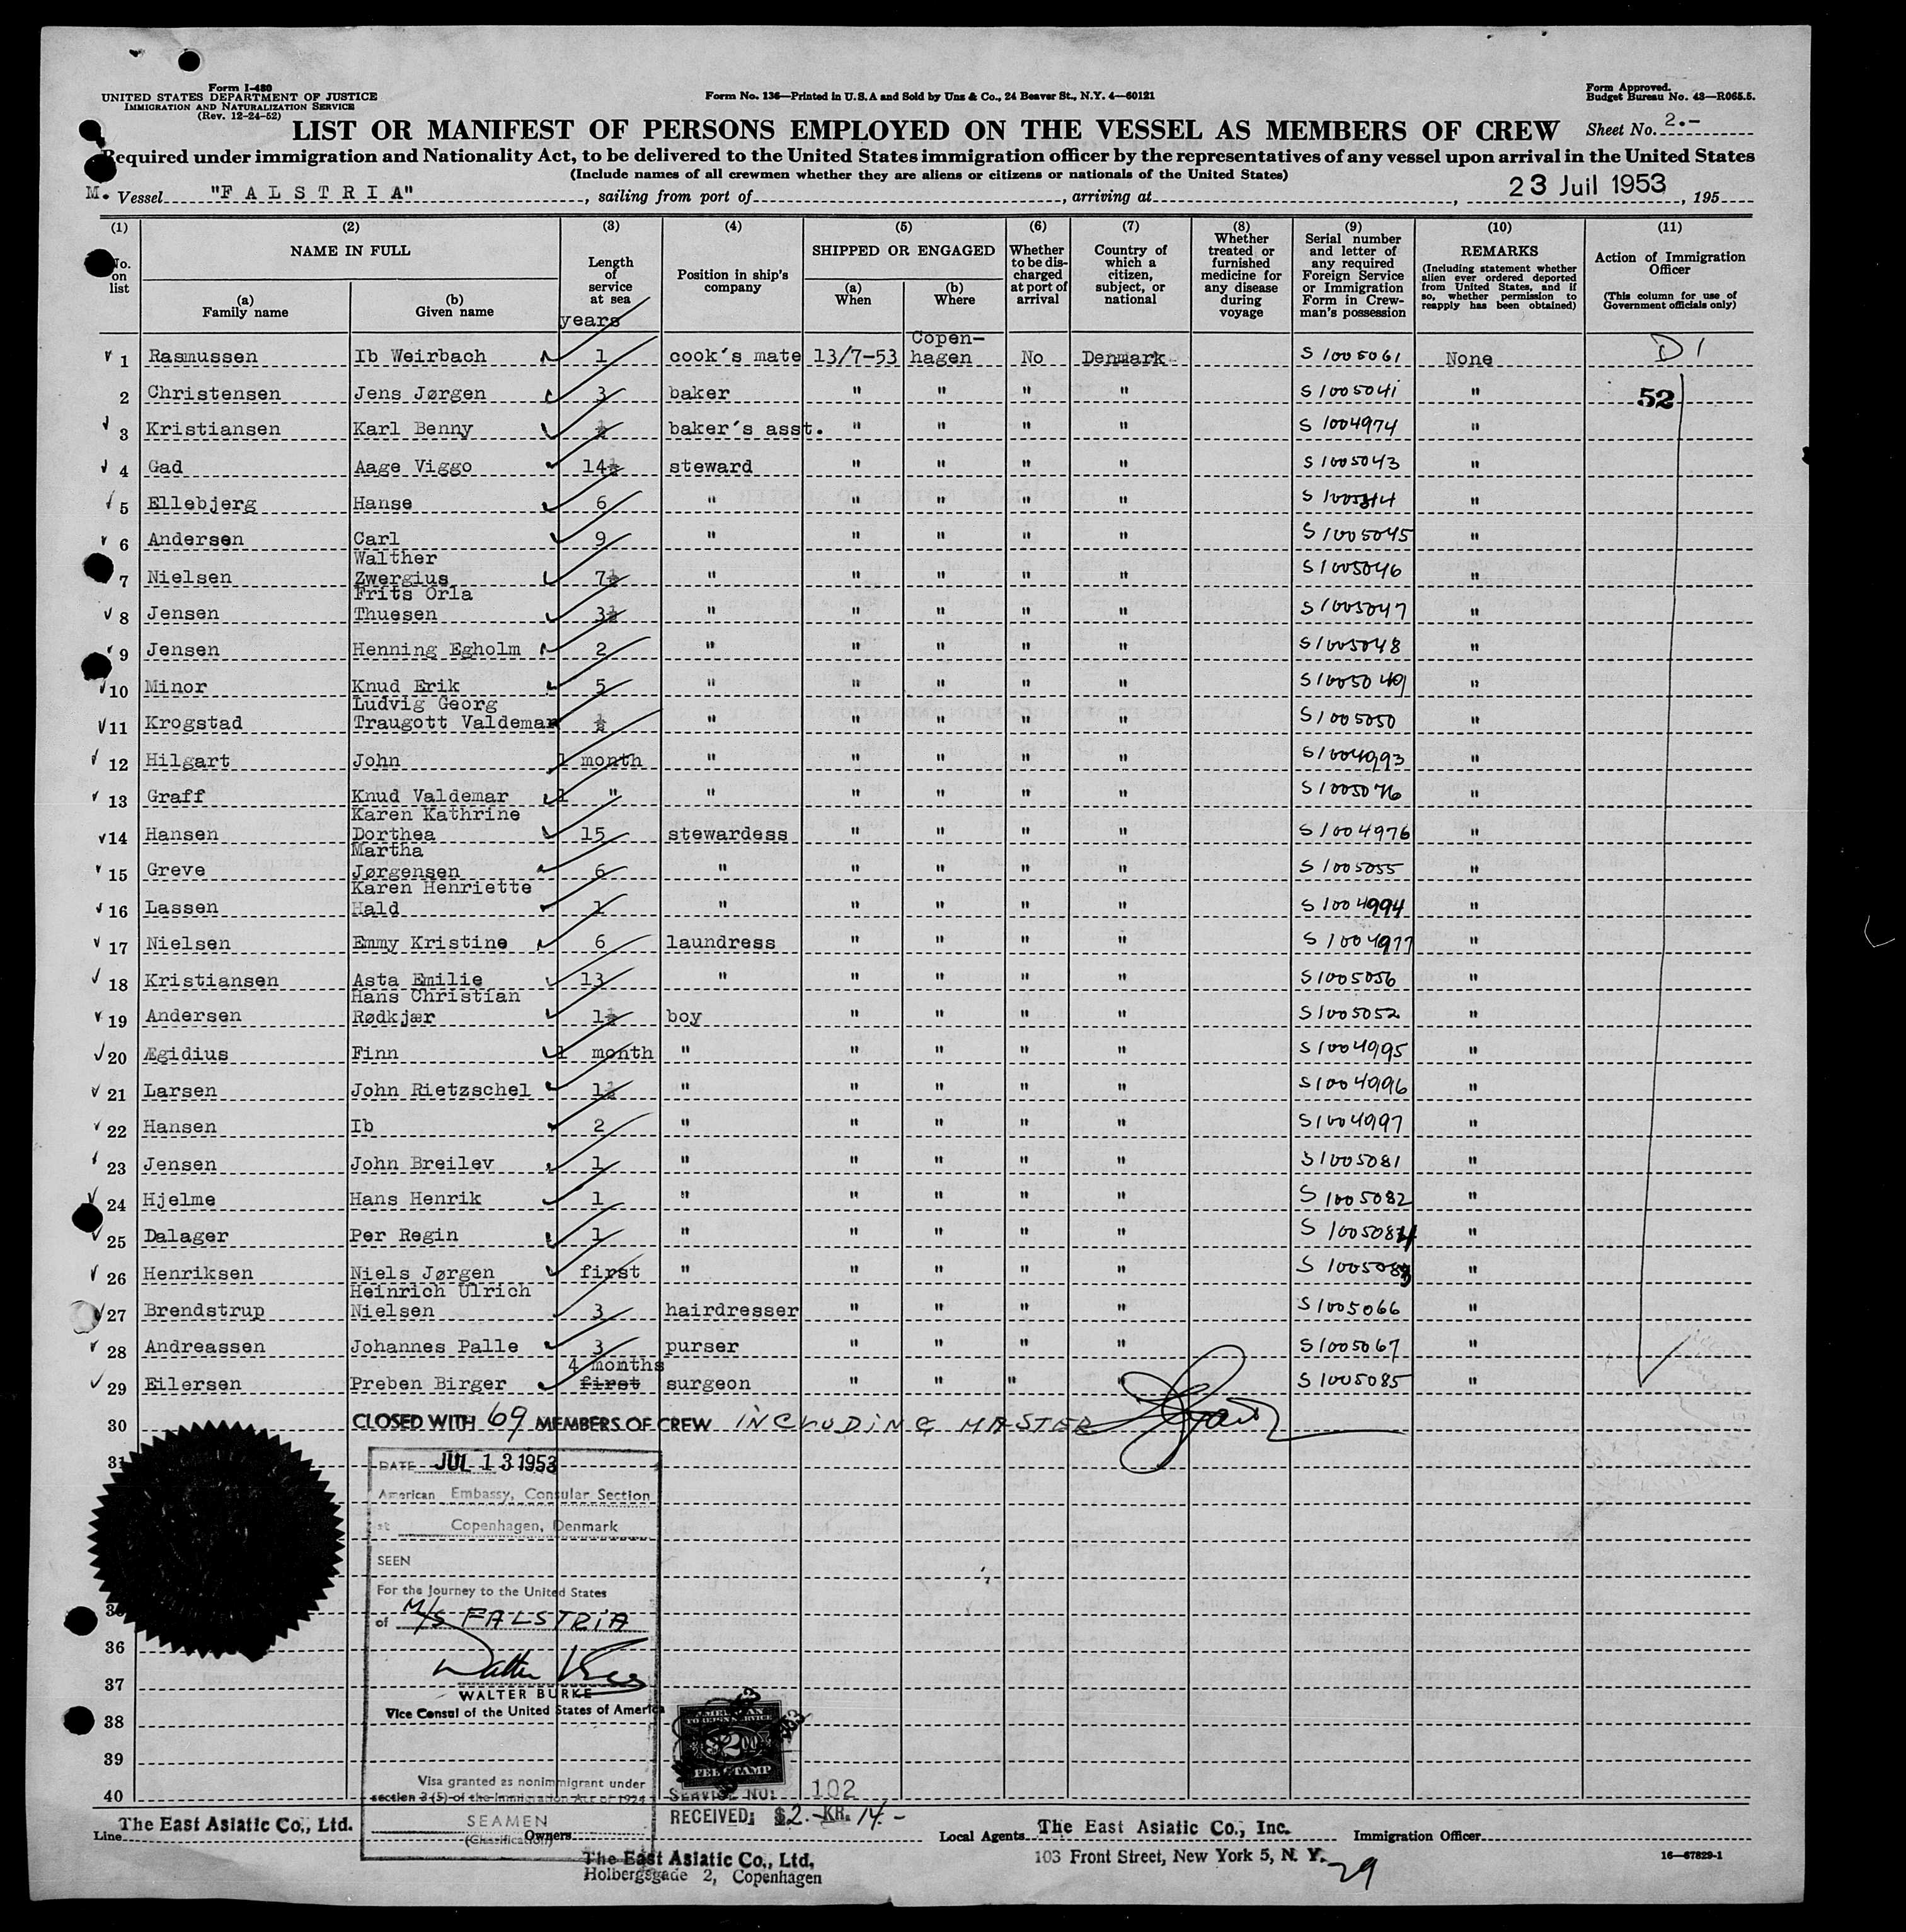 Form I-480
UNITED STATES DEPARTMENT OF JUSTICE
IMMIGRATION AND NATURALIZATION SERVICE
(Rev. 12-24-52)
Form No. 136—Printed in U.S.A and Sold by Unz & Co., 24 Beaver St., N.Y. 4—60121
Form Approved.
Budget Bureau No. 43—R065.5.
LIST OR MANIFEST OF PERSONS EMPLOYED ON THE VESSEL AS MEMBERS OF CREW Sheet No. 2.-
Required under immigration and Nationality Act, to be delivered to the United States immigration officer by the representatives of any vessel upon arrival in the United States
(Include names of all crewmen whether they are aliens or citizens or nationals of the United States)
M. Vessel "FALSTRIA", sailing from port of , arriving at , 23 Juil 1953, 195
(1) (2) (3) (4) (5) (6) (7) (8) (9) (10) (11)
No. on list
NAME IN FULL
(a) Family name
(b) Given name
Length of service at sea
years
Position in ship's company
SHIPPED OR ENGAGED
(a) When
(b) Where
Whether to be discharged at port of arrival
Country of which a citizen, subject, or national
Whether treated or furnished medicine for any disease during voyage
Serial number and letter of any required Foreign Service or Immigration Form in Crewman's possession
REMARKS
(Including statement whether alien ever ordered deported from United States, and if so, whether permission to reapply has been obtained)
Action of Immigration Officer
(This column for use of Government officials only)
1 Rasmussen Ib Weirbach 1 cook's mate 13/7-53 Copen-hagen No Denmark S 1005061 None D 1
2 Christensen Jens Jørgen 3 baker " " " " S 1005041 " 52
3 Kristiansen Karl Benny ½ baker's asst. " " " " S 1004974 "
4 Gad Aage Viggo 14½ steward " " " " S 1005043 "
5 Ellebjerg Hanse 6 " " " " " "
6 Andersen Carl 9 " " " " " S 1005045 "
7 Nielsen Walther Zwergius 7½ " " " " " S 1005046 "
8 Jensen Frits Orla Thuesen 3½ " " " " " S 1005047 "
9 Jensen Henning Egholm 2 " " " " " S 1005048 "
10 Minor Knud Erik 5 " " " " " S 1005049 "
11 Krogstad Ludvig Georg Traugott Valdemar ½ " " " " " S 1005050 "
12 Hilgart John 1 month " " " " " S 1004993 "
13 Graff Knud Valdemar 1 " " " " " " S 1005076 "
14 Hansen Karen Kathrine Dorthea 15 stewardess " " " " S 1004976 "
15 Greve Martha Jørgensen 6 " " " " " S 1005055 "
16 Lassen Karen Henriette Hald 1 " " " " " S 1004994 "
17 Nielsen Emmy Kristine 6 laundress " " " " S 1004977 "
18 Kristiansen Asta Emilie 13 " " " " " S 1005056 "
19 Andersen Hans Christian Rødkjær 1½ boy " " " " S 1005052 "
20 Ægidius Finn 1 month " " " " " S 1004995 "
21 Larsen John Rietzschel 1½ " " " " " S 1004996 "
22 Hansen Ib 2 " " " " " S 1004997 "
23 Jensen John Breilev 1 " " " " " S 1005081 "
24 Hjelme Hans Henrik 1 " " " " " S 1005082 "
25 Dalager Per Regin 1 " " " " " S 1005084 "
26 Henriksen Niels Jørgen first " " " " " S 1005083 "
27 Brendstrup Heinrich Ulrich Nielsen 3 hairdresser " " " " S 1005066 "
28 Andreassen Johannes Palle 3 purser " " " " S 1005067 "
29 Eilersen Preben Birger 4 months first surgeon " " " " S 1005085 "
30 CLOSED WITH 69 MEMBERS OF CREW INCLUDING MASTER
31
DATE JUL 13 1953
American Embassy, Consular Section
at Copenhagen, Denmark
SEEN
For the Journey to the United States
of M/S FALSTRIA
36
37
WALTER BURKE
Vice Consul of the United States of America
38
39
40
AMERICAN FOREIGN SERVICE
$2.00
FEE STAMP
Visa granted as nonimmigrant under
section 3 (5) of the Immigration Act of 1924
SEAMEN
(Classification)
SERVICE NO: 102
RECEIVED: $2.- KR. 14.-
Line The East Asiatic Co., Ltd.
Owners
The East Asiatic Co., Ltd.
Holbergsgade 2, Copenhagen
Local Agents The East Asiatic Co., Inc.
103 Front Street, New York 5, N. Y.
29
Immigration Officer
16—67829-1